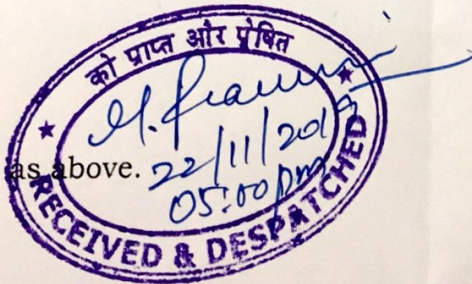 को प्राप्त और प्रेषित
as above.
22/11/2019
05:00 pm
RECEIVED & DESPATCHED